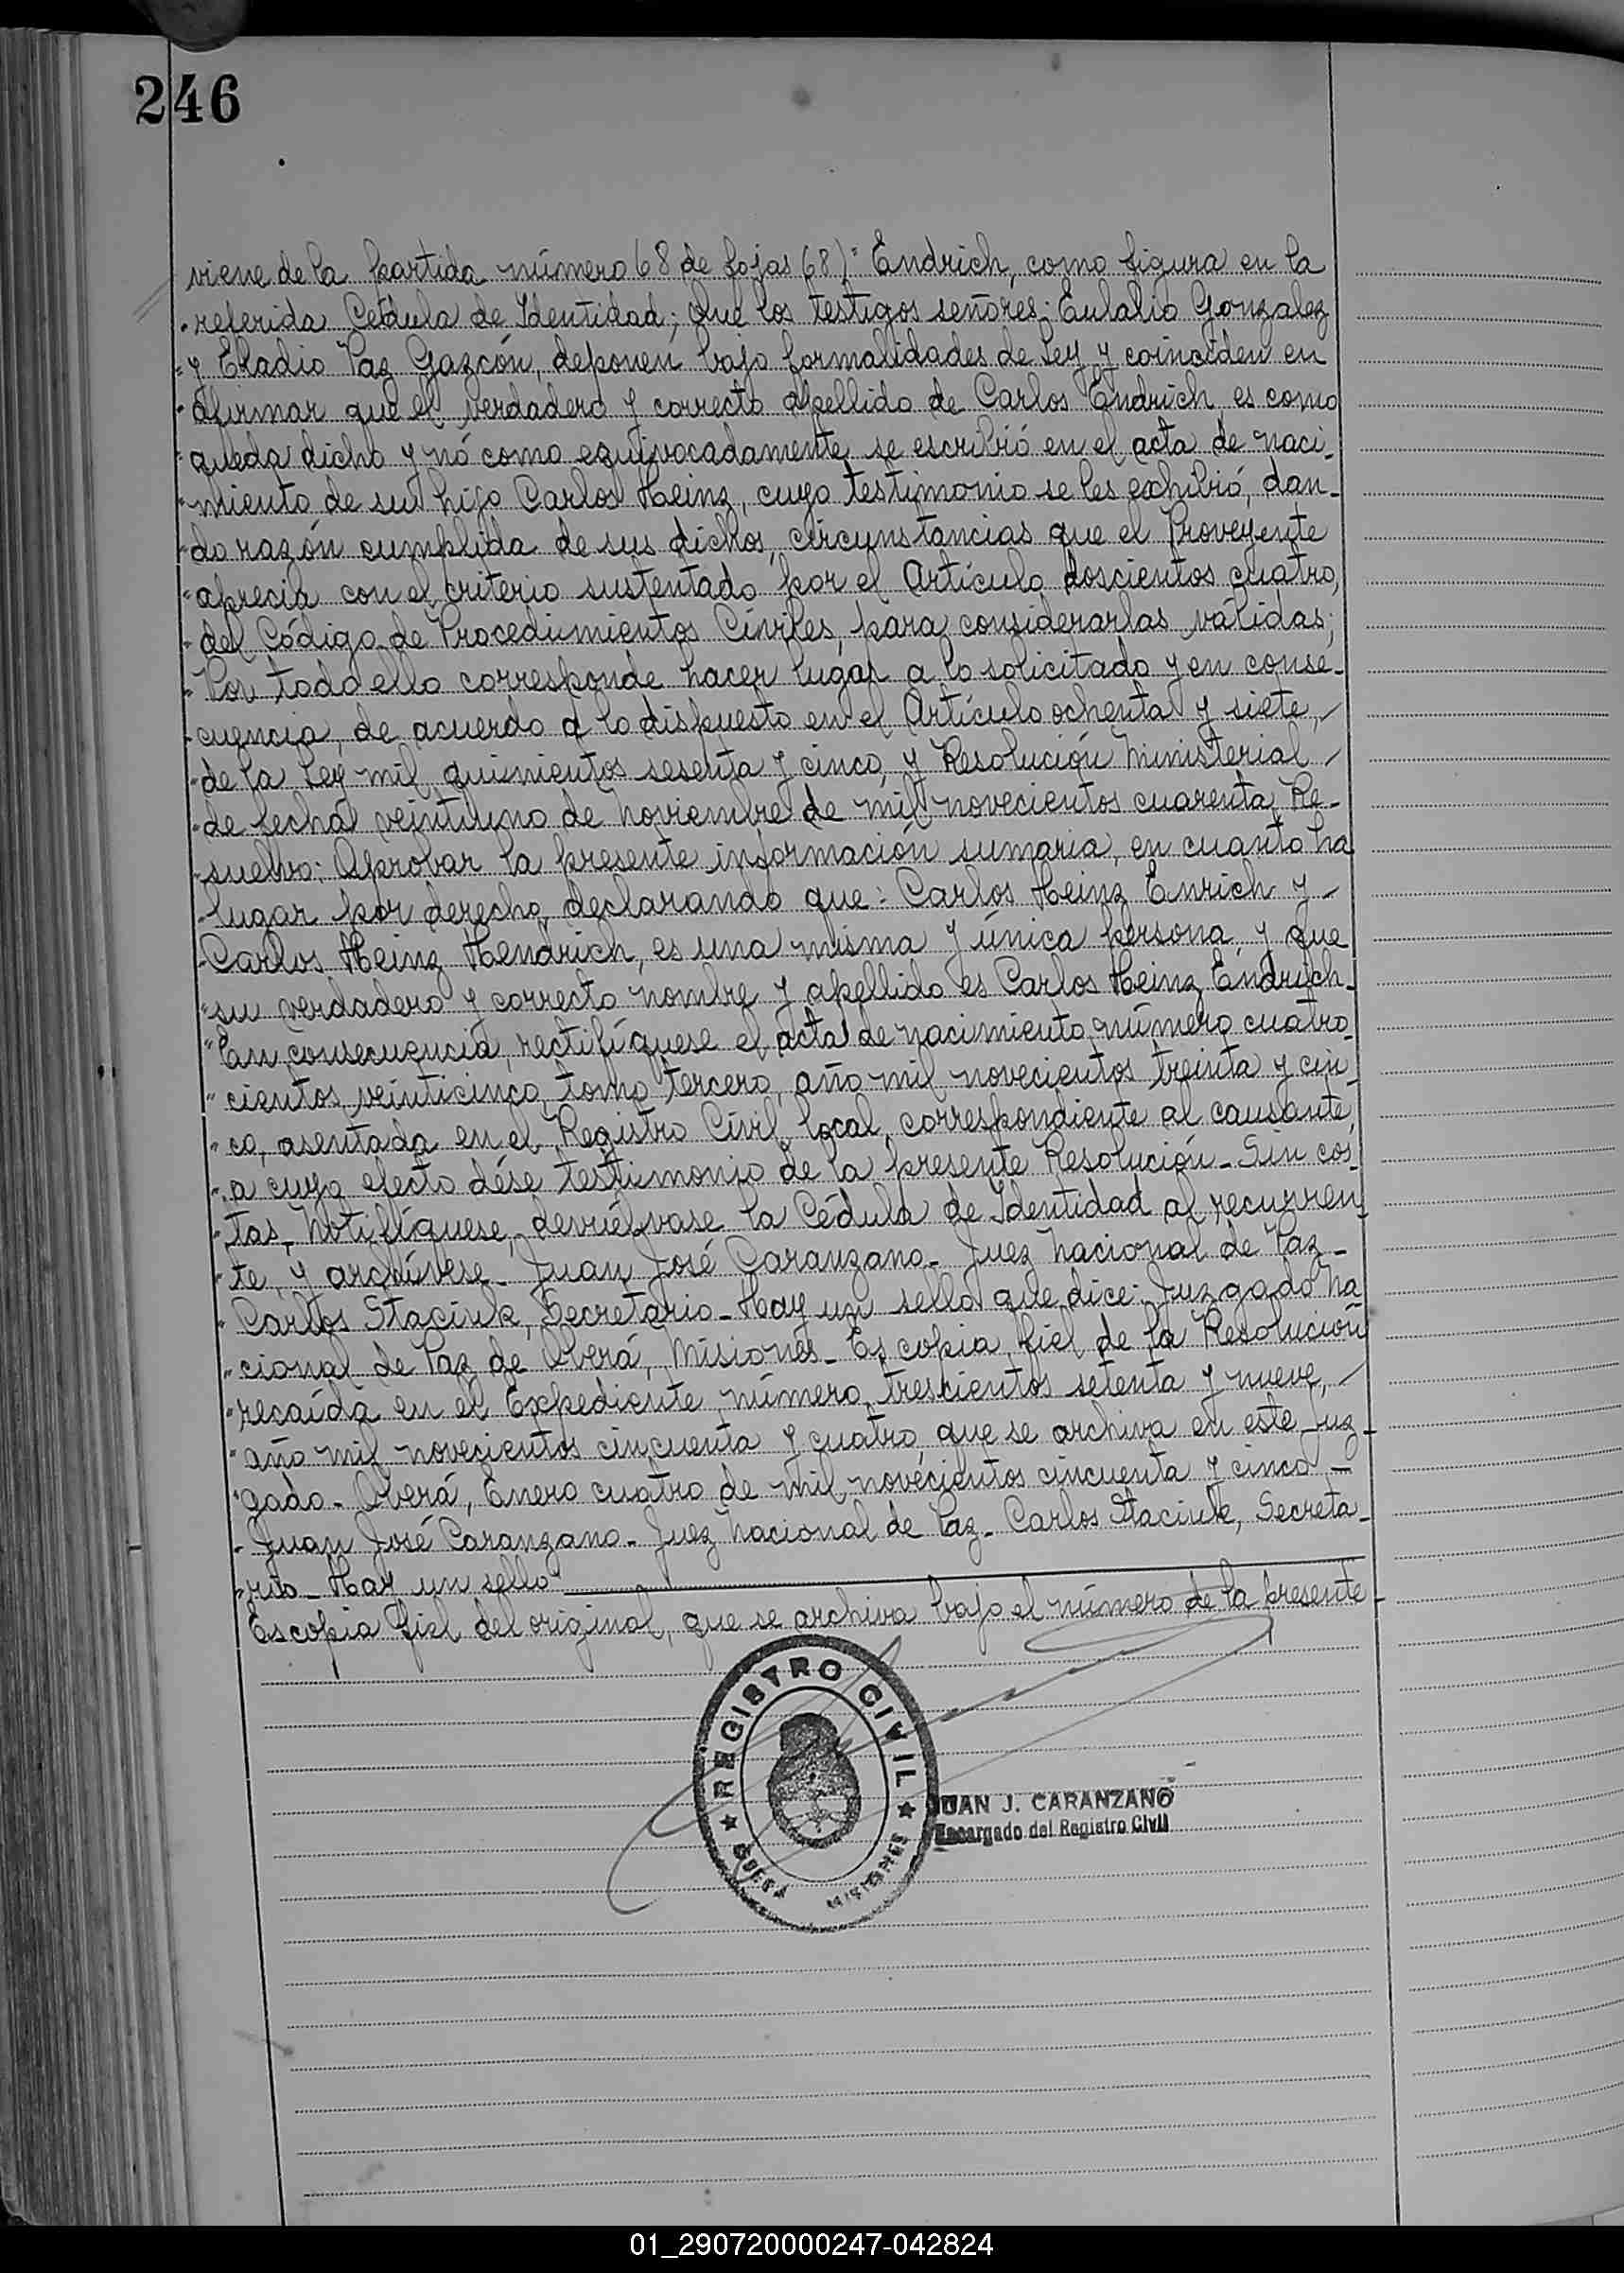 246
viene de la partida número 68 de fojas 68): "Endrich, como figura en la
"referida Cédula de Identidad; Que los testigos señores: Eulalio Gonzalez
"y Eladio Paz Gazcón, deponen bajo formalidades de Ley y coinciden en
"afirmar que el verdadero y correcto apellido de Carlos Endrich, es como
"queda dicho y nó como equivocadamente se escribió en el acta de naci-
"miento de su hijo Carlos Heinz, cuyo testimonio se les exhibió, dan-
"do razón cumplida de sus dichos, circunstancias que el Proveyente
"aprecia con el criterio sustentado por el Artículo doscientos cuatro,
"del Código de Procedimientos Civiles, para considerarlas válidas;
"Por todo ello corresponde hacer lugar a lo solicitado y en conse-
"cuencia, de acuerdo a lo dispuesto en el Artículo ochenta y siete,-
"de la Ley mil quinientos sesenta y cinco, y Resolución Ministerial -
"de fecha veintiuno de noviembre de mil novecientos cuarenta, Re-
"suelvo: Aprobar la presente información sumaria, en cuanto ha
"lugar por derecho, declarando que: Carlos Heinz Enrich y -
"Carlos Heinz Hendrich, es una misma y única persona, y que
"su verdadero y correcto nombre y apellido es Carlos Heinz Endrich-
"En consecuencia, rectifíquese el acta de nacimiento número cuatro-
"cientos veinticinco, tomo tercero, año mil novecientos treinta y cin-
"co, asentada en el Registro Civil local, correspondiente al causante,
"a cuyo efecto dése testimonio de la presente Resolución- Sin cos-
"tas, Notifíquese, devuélvase la Cédula de Identidad al recurren-
"te, y archívese- Juan José Caranzano- Juez Nacional de Paz-
"Carlos Staciuk, Secretario- Hay un sello que dice: Juzgado Na-
"cional de Paz de Oberá, Misiones- Es copia fiel de la Resolución
"recaída en el Expediente número trescientos setenta y nueve,-
"año mil novecientos cincuenta y cuatro, que se archiva en este Juz-
"gado- Oberá, Enero cuatro de mil novecientos cincuenta y cinco -
"Juan José Caranzano- Juez Nacional de Paz- Carlos Staciuk, Secreta-
"rio- Hay un sello"
Es copia fiel del original, que se archiva bajo el número de la presente-
REGISTRO CIVIL
MISIONES
JUAN J. CARANZANO
Encargado del Registro Civil
01_290720000247-042824